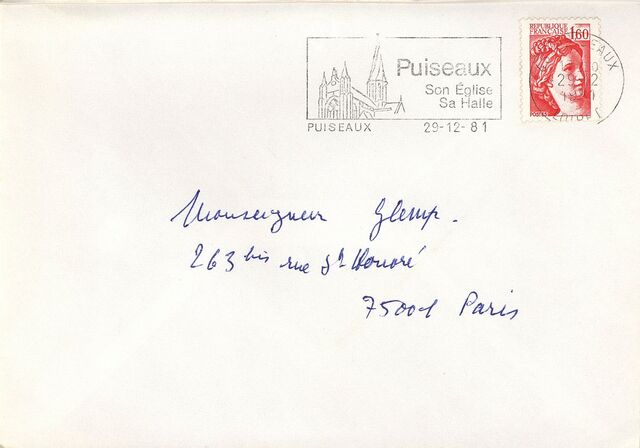 Puiseaux
Son Église
Sa Halle
PUISEAUX 29-12-81
REPUBLIQUE
FRANÇAISE
1,60
POSTES
EAUX
29 12
LOIRET
Monseigneur Glemp.
263 bis rue St Honoré
75001 Paris